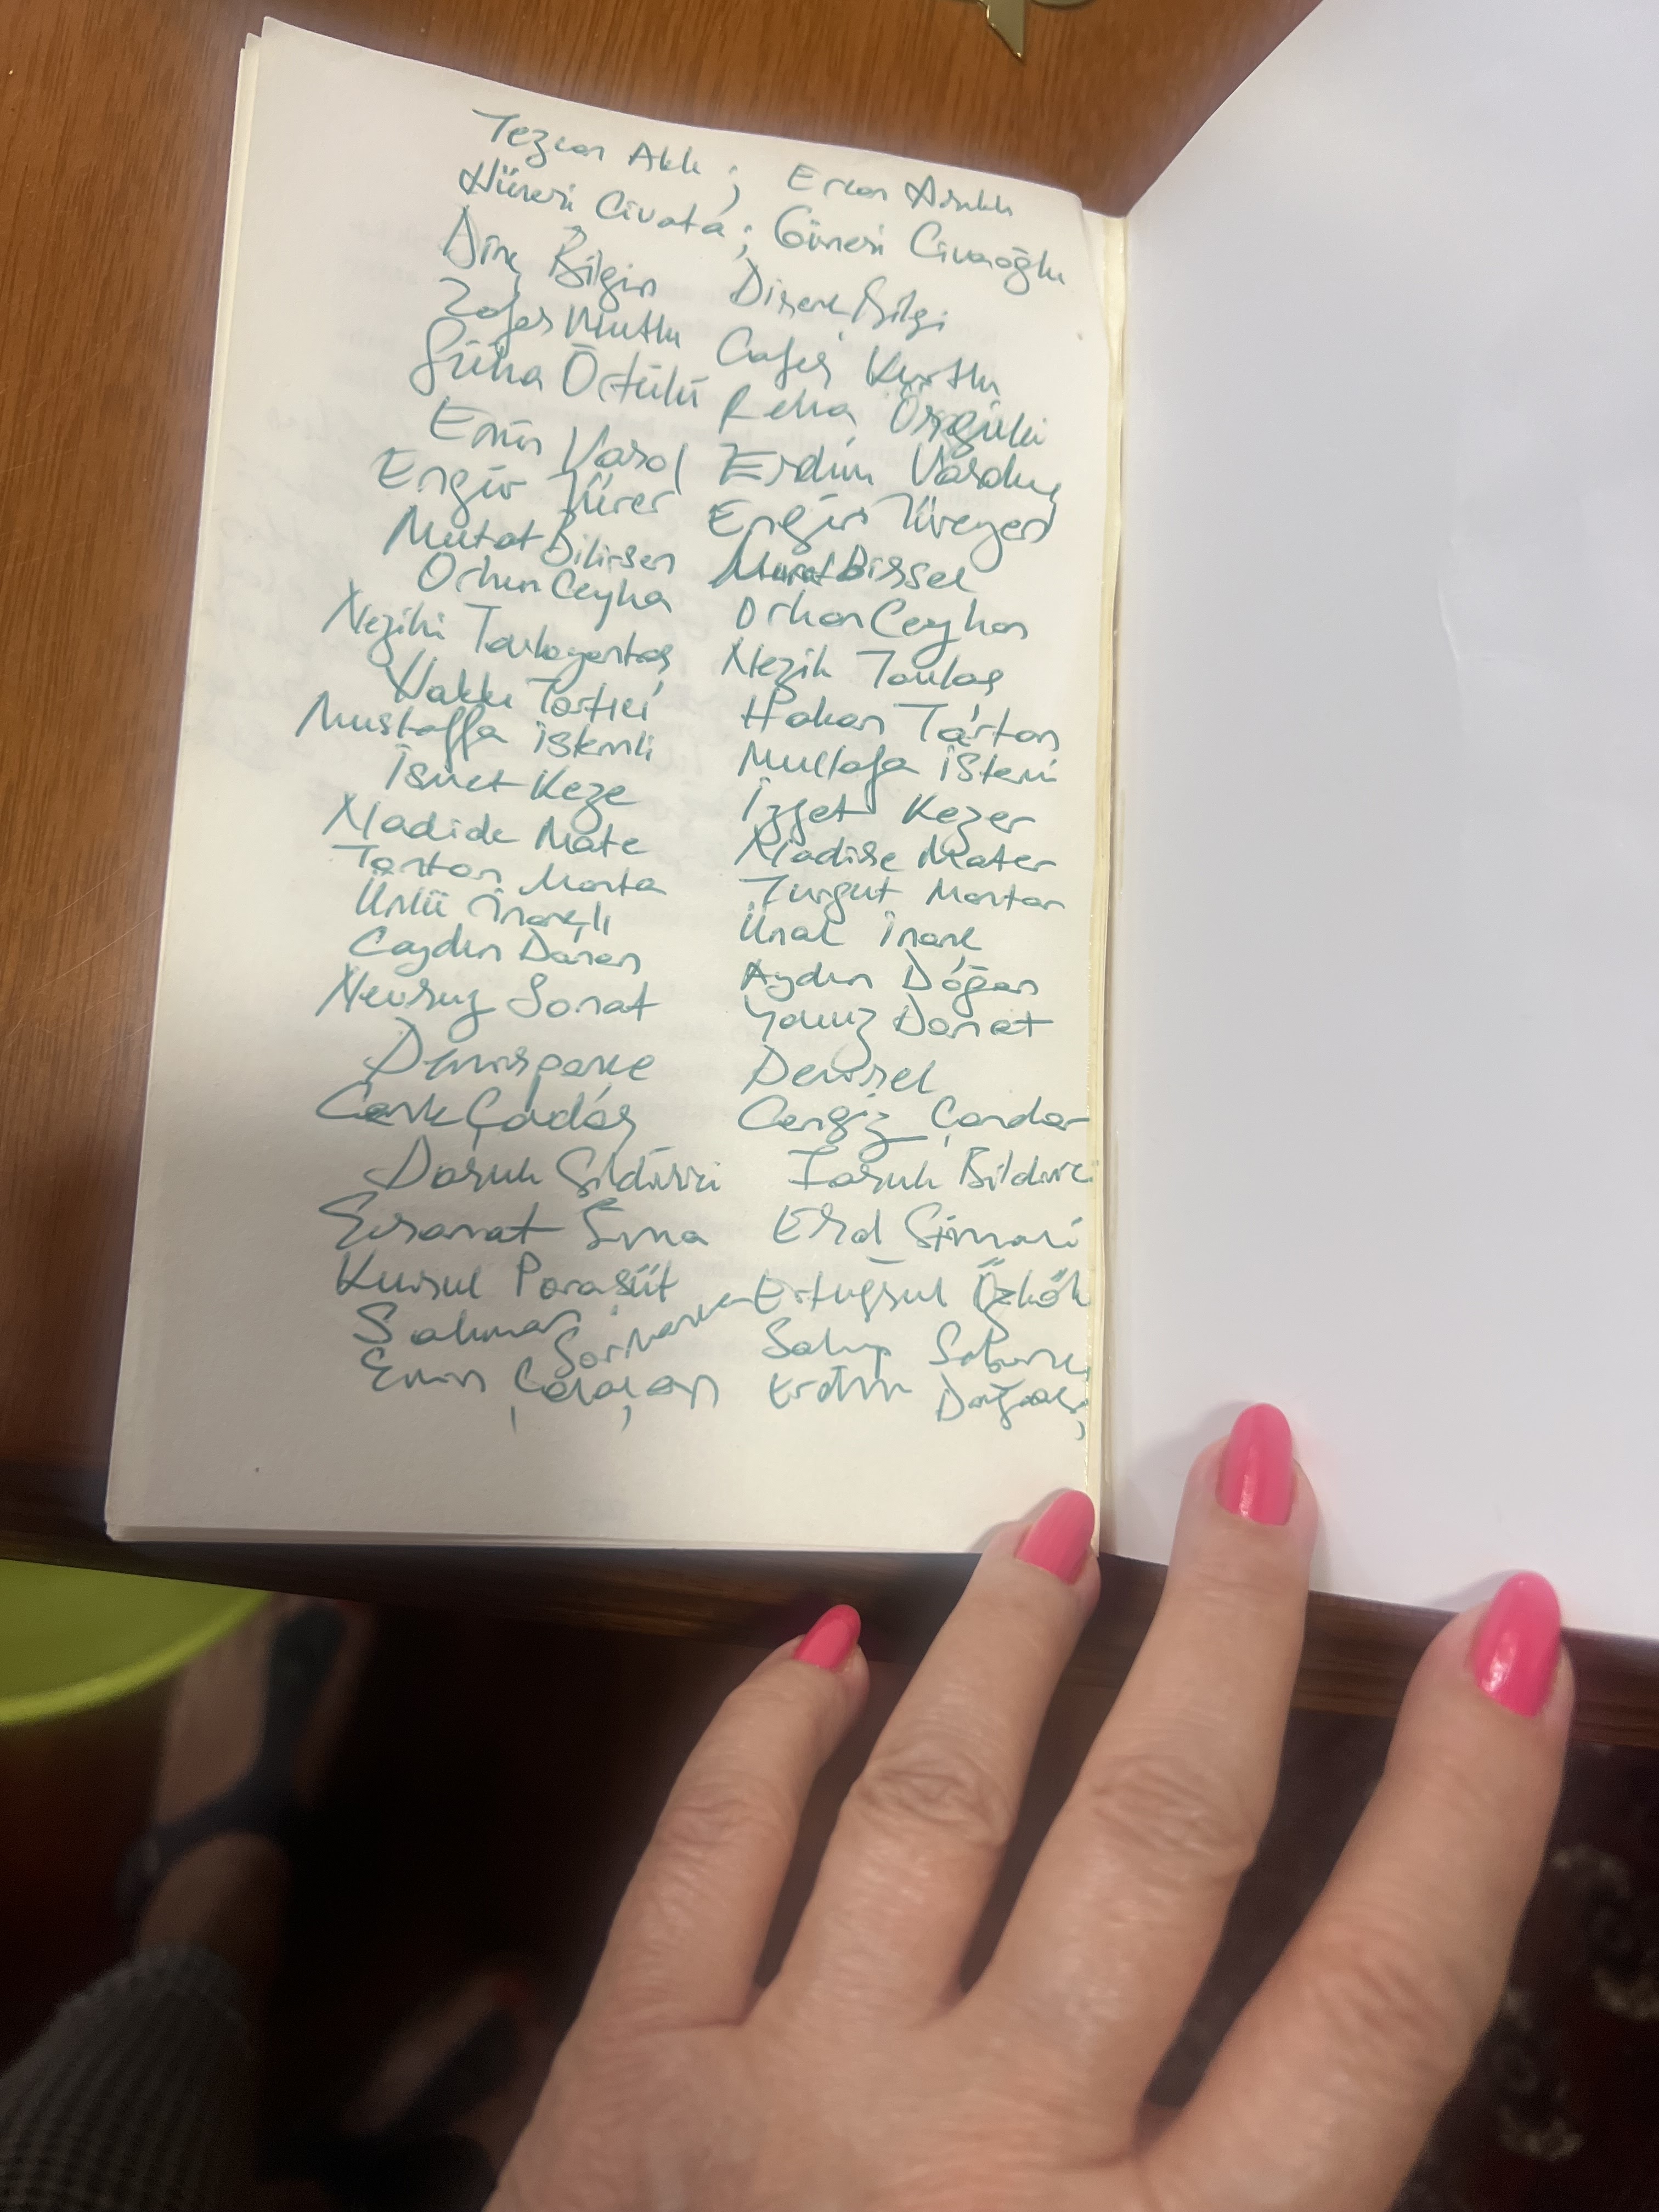 Tezcan Aklı ; Ercan Arıklı
Hüneri Civata ; Güneri Civaoğlu
Dinç Bilgin Direnç Bilgi
Zafer Mutlu Cafer Kurtlu
Süha Örtülü Reha Örgülü
Emin Varol Erdin
Engin Türer Engin Türeyen
Murat Bilirsen Murat Birsel
Orhun Ceyha Orhan Ceyhan
Nezihi Tavlayantaş Nezih Tavlaş
Hakkı Tartıcı Hakan Tartan
Mustaffa İstemli Mustafa İstemi
İsmet Keze İzzet Kezer
Nadide Mate Nadire Mater
Tantan Manta Turgut Mantar
Ünlü İnançlı Ünal İnanç
Caydın Danan Aydın Doğan
Nevruz Sonat Yavuz Donat
Demirparçe Demirel
Cenk Çadar Cengiz Çandar
Daruk Sildirici Faruk Bildirici
Sıma Erol Simavi
Kurşul Paraşüt Ertuğrul Özkök
Salman Sormerve
Emin Çölaşan